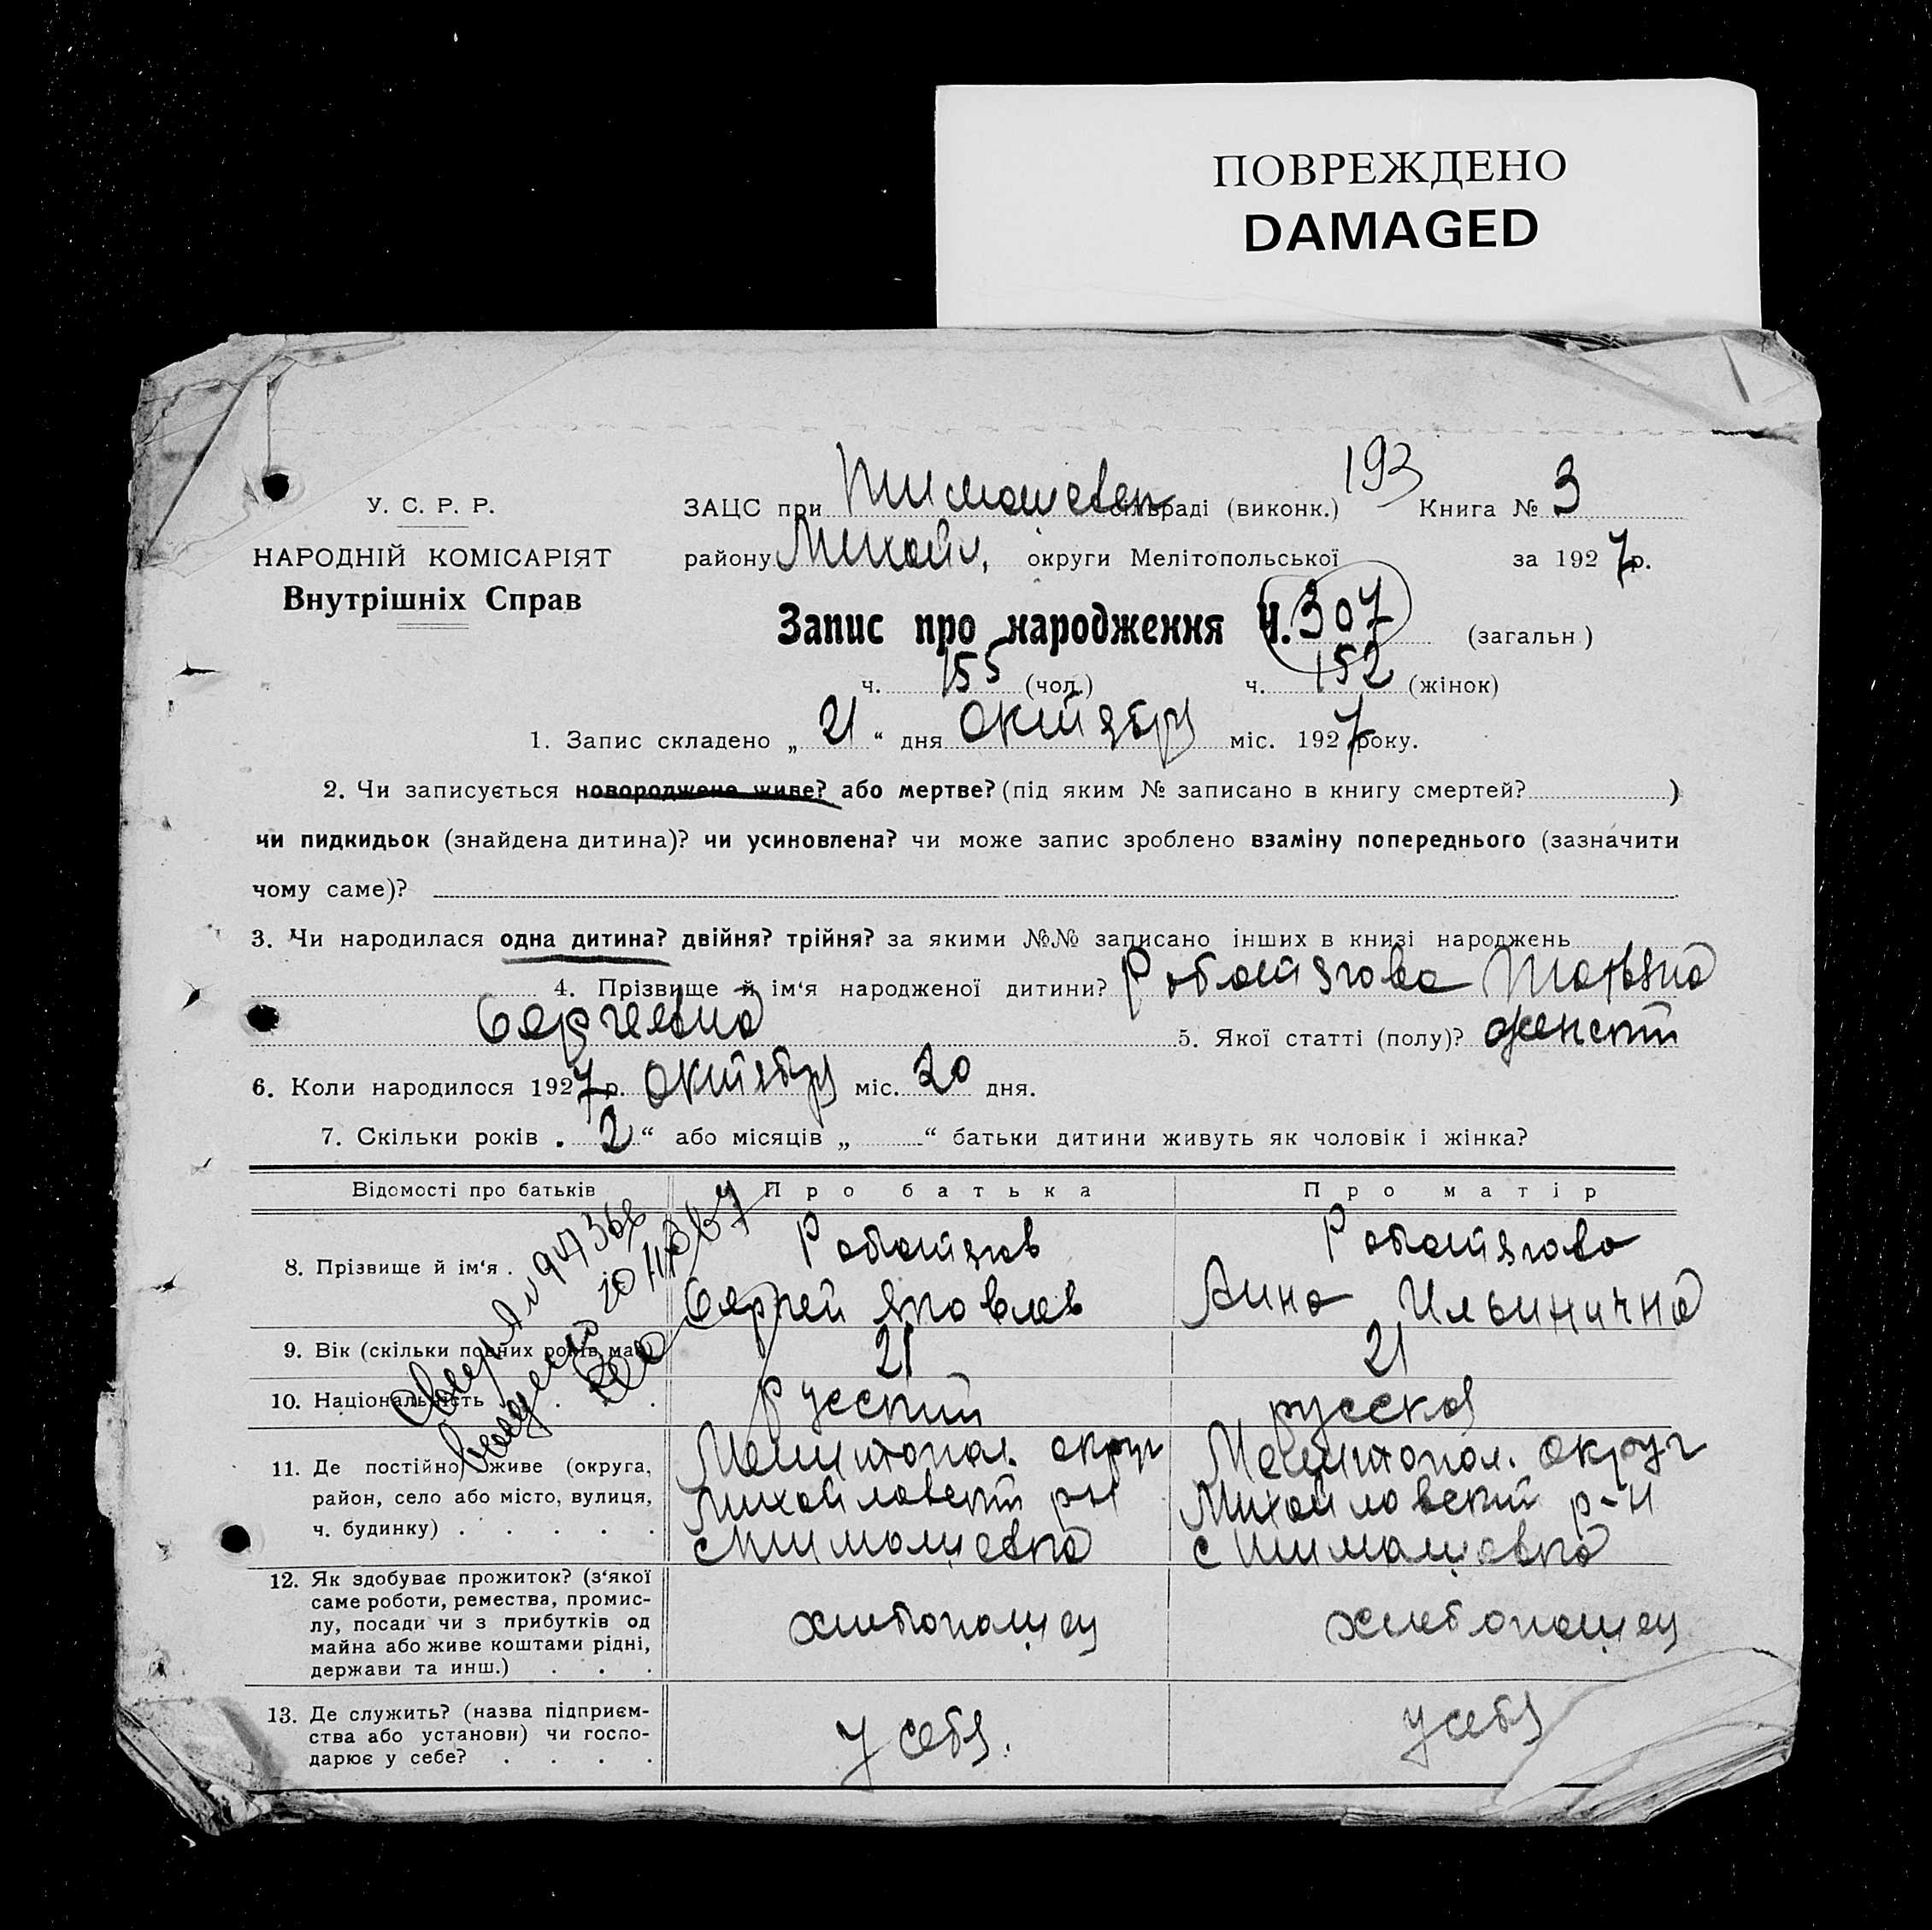 ПОВРЕЖДЕНО
DAMAGED
193
У. С. Р. Р.
ЗАЦС при Тимошевск сільраді (виконк.) Книга № 3
НАРОДНІЙ КОМІСАРІЯТ
району Михайл, округи Мелітопольської за 1927 р.
Внутрішніх Справ
Запис про народження Ч. 307 (загальн.)
ч. 155 (чол.) ч. 152 (жінок)
1. Запис складено „ 21 “ дня октября міс. 1927 року.
2. Чи записується новороджене живе? або мертве? (під яким № записано в книгу смертей? )
чи пидкидьок (знайдена дитина)? чи усиновлена? чи може запис зроблено взаміну попереднього (зазначити
чому саме)?
3. Чи народилася одна дитина? двійня? трійня? за якими №№ записано інших в книзі народжень
4. Прізвище й ім‘я народженої дитини? Работягова Татьяна
Сергеевна 5. Якої статті (полу)? женский
6. Коли народилося 1927 р. октября міс. 20 дня.
7. Скільки років „ 2 “ або місяців „ “ батьки дитини живуть як чоловік і жінка?
Відомості про батьків Про батька Про матір
8. Прізвище й ім‘я . Работягов Работягова
Сергей Яковлев Анна Ильинична
9. Вік (скільки повних років має) 21 21
10. Національність . . . . Русский русская
11. Де постійно живе (округа, Мелитопол. округ Мелитопол. округ
район, село або місто, вулиця, Михайловский р-н Михайловский р-н
ч. будинку) . . . . . с Тимошевка с Тимошевка
12. Як здобуває прожиток? (з‘якої
саме роботи, ремества, промис-
лу, посади чи з прибутків од хлебопашец хлебопашец
майна або живе коштами рідні,
держави та инш.) . . .
13. Де служить? (назва підприєм-
ства або установи) чи госпо- у себя. у себя
дарює у себе? . . . .